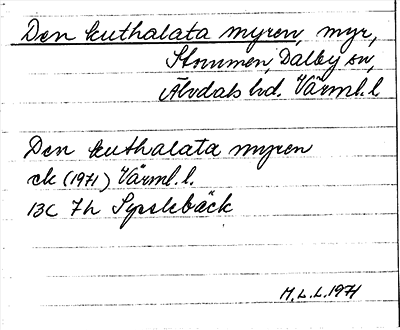 Den kuthalata myren, myr,
Stommen, Dalby sn,
Älvdals hd. Värml. l
Den kuthalata myren
ek (1971) Värml. l.
13C 7h Sysslebäck
M. L. L. 1971